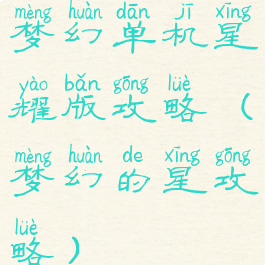 mèng huàn dān jī xīng
梦幻单机星
yào bǎn gōng lüè
耀版攻略（
mèng huàn de xīng gōng
梦幻的星攻
lüè
略）